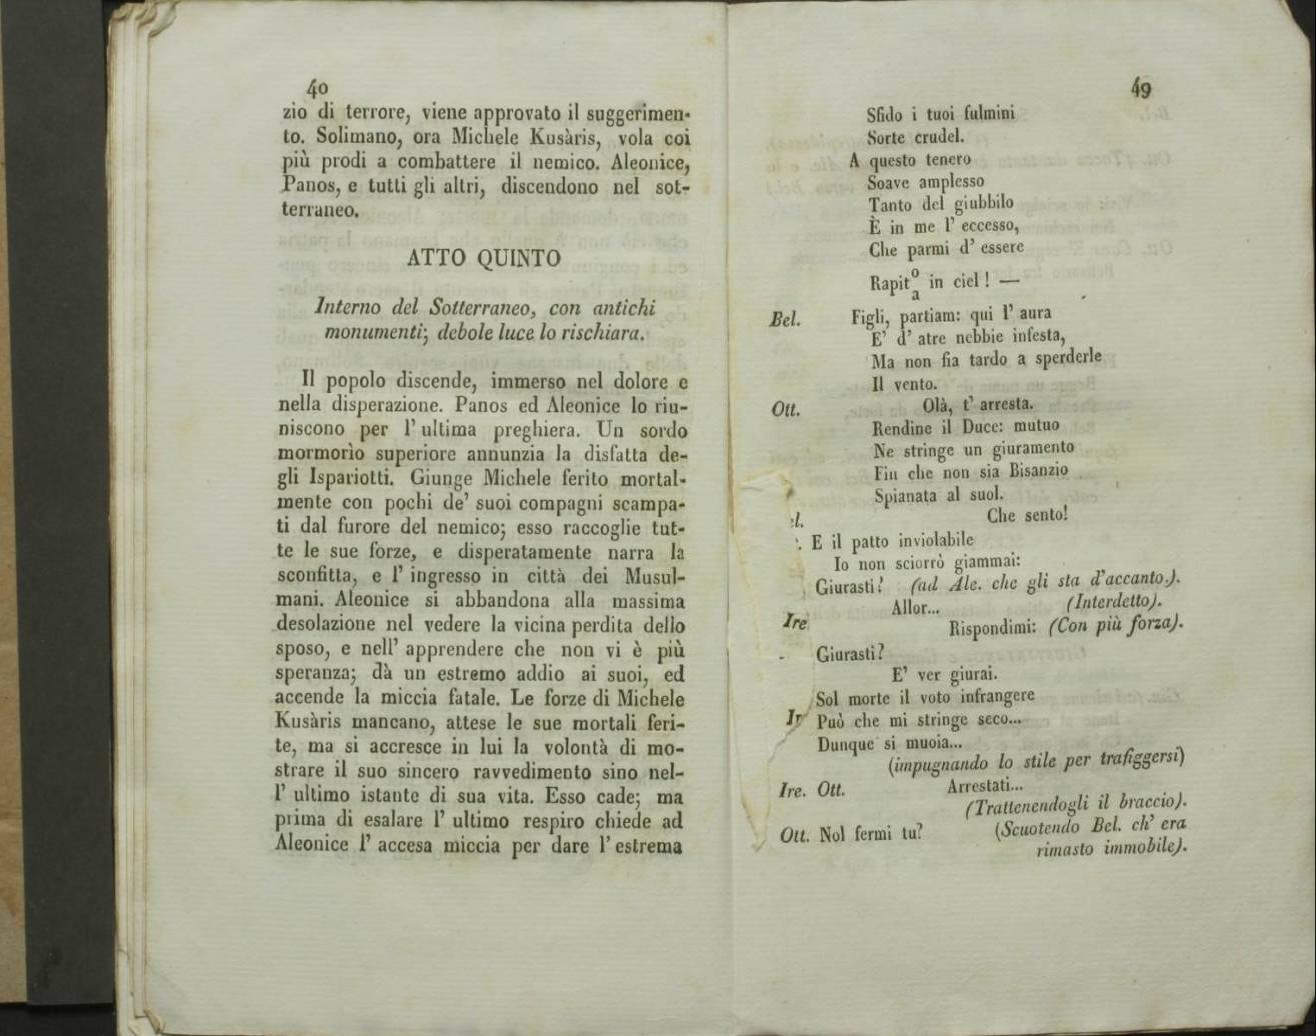 40
zio di terrore, viene approvato il suggerimen-
to. Solimano, ora Michele Kusàris, vola coi
più prodi a combattere il nemico. Aleonice,
Panos, e tutti gli altri, discendono nel sot-
terraneo.
ATTO QUINTO
Interno del Sotterraneo, con antichi
monumenti; debole luce lo rischiara.
Il popolo discende, immerso nel dolore e
nella disperazione. Panos ed Aleonice lo riu-
niscono per l' ultima preghiera. Un sordo
mormorìo superiore annunzia la disfatta de-
gli Ispariotti. Giunge Michele ferito mortal-
mente con pochi de' suoi compagni scampa-
ti dal furore del nemico; esso raccoglie tut-
te le sue forze, e disperatamente narra la
sconfitta, e l' ingresso in città dei Musul-
mani. Aleonice si abbandona alla massima
desolazione nel vedere la vicina perdita dello
sposo, e nell' apprendere che non vi è più
speranza; dà un estremo addio ai suoi, ed
accende la miccia fatale. Le forze di Michele
Kusàris mancano, attese le sue mortali feri-
te, ma si accresce in lui la volontà di mo-
strare il suo sincero ravvedimento sino nel-
l' ultimo istante di sua vita. Esso cade; ma
prima di esalare l' ultimo respiro chiede ad
Aleonice l' accesa miccia per dare l' estrema
49
Sfido i tuoi fulmini
Sorte crudel.
A questo tenero
Soave amplesso
Tanto del giubbilo
È in me l' eccesso,
Che parmi d' essere
Rapit o a in ciel! —
Bel. Figli, partiam: qui l' aura
E' d' atre nebbie infesta,
Ma non fia tardo a sperderle
Il vento.
Ott. Olà, t' arresta.
Rendine il Duce: mutuo
Ne stringe un giuramento
Fin che non sia Bisanzio
Spianata al suol.
el. Che sento!
E il patto inviolabile
Io non sciorrò giammai:
Giurasti? (ad Ale. che gli sta d'accanto.).
Allor... (Interdetto).
Ire Rispondimi: (Con più forza).
Giurasti?
E' ver giurai.
Sol morte il voto infrangere
Ir Può che mi stringe seco...
Dunque si muoia...
(impugnando lo stile per trafiggersi)
Ire. Ott. Arrestati...
(Trattenendogli il braccio).
Ott. Nol fermi tu? (Scuotendo Bel. ch' era
rimasto immobile).